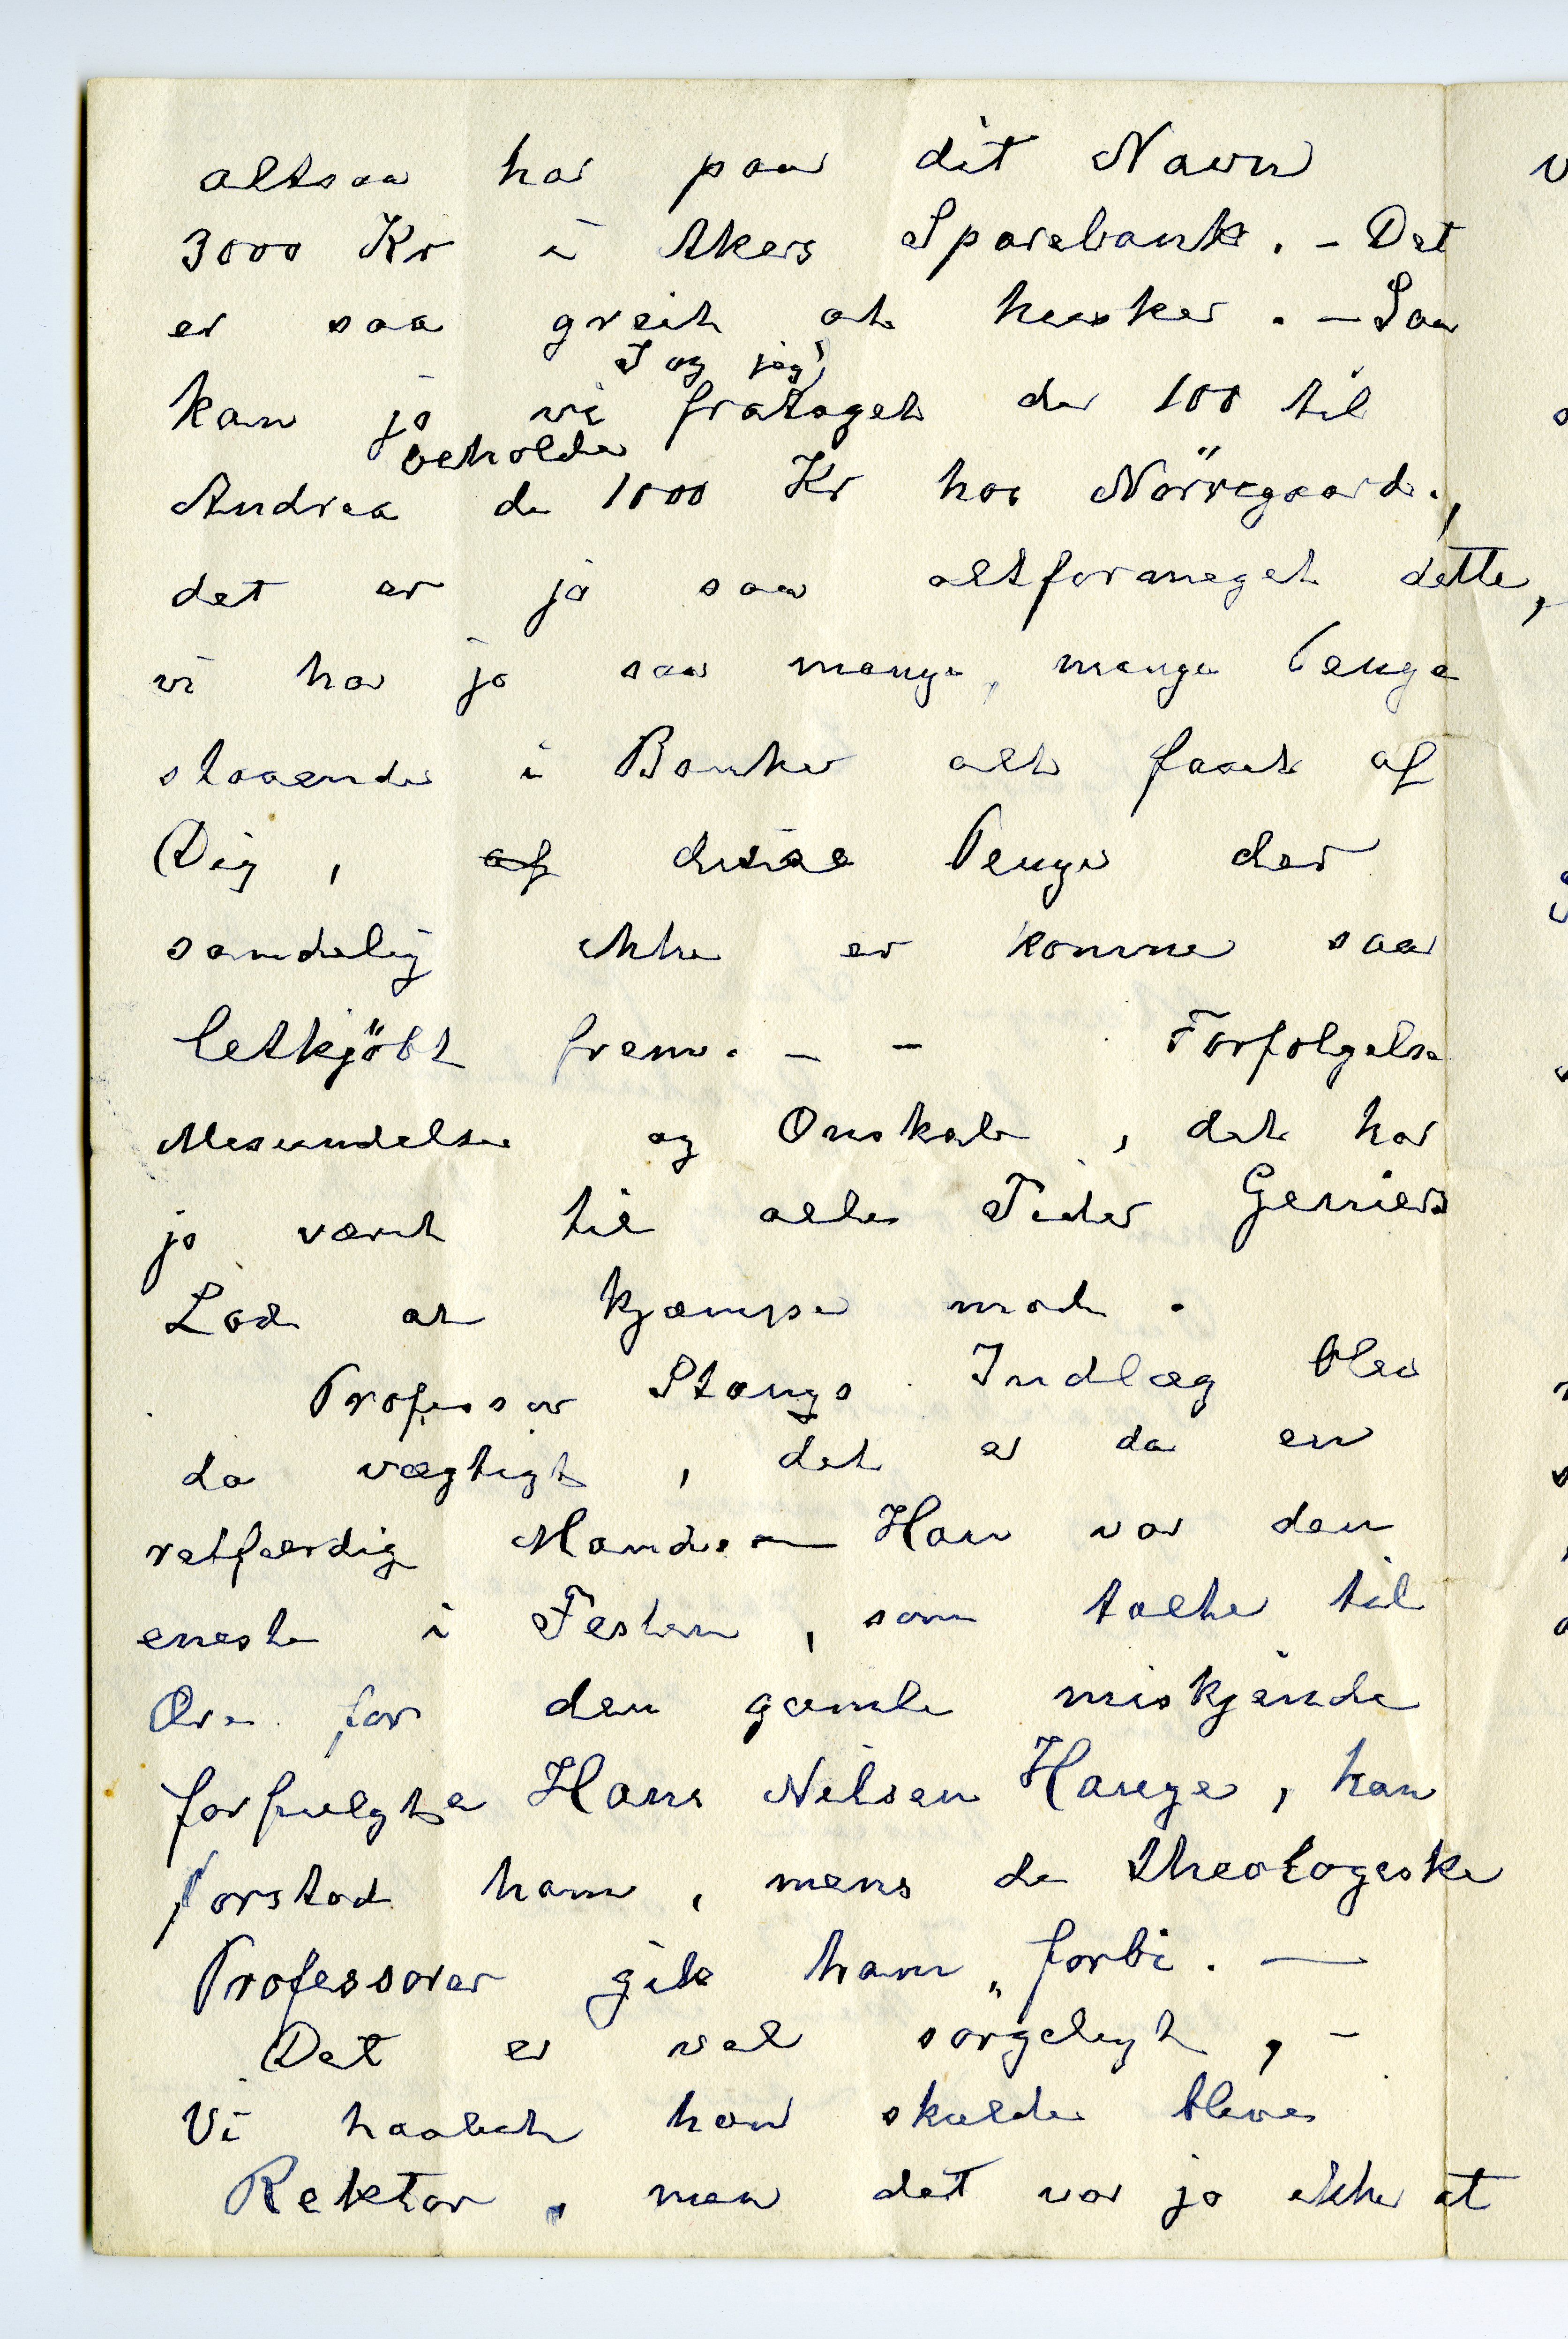 altsaa har paa dit Navn
3000 Kr i Akers Sparebank. – Det
er saa greit at huske. – Saa
I og jeg)
kan jo vi frataget de 100 til
beholde
Andrea de 1000 Kr hos Nörregaard.,
det er jo saa altformeget dette,
vi har jo saa mange, mange Penge
staaende i Banker alt faaet af
Dig, af disse Penge der
sandelig ikke er komne saa
letkjöbt frem. – – Forfolgelse
Misundelse og Onskab, det har
jo været til alle Tider Geniers
Lod at kjæmpe mod.
Professor Stangs Indlæg blev
da vægtigt, det er da en
retfærdig Mand. – Han var den
eneste i Festen, som talte til
Ære for den gamle miskjendte
forfulgte Hans Nilsen Hauge, han
forstod ham, mens de theologiske
Professorer gik ham „forbi. —
Det er vel sörgeligt, –
Vi haabet han skulde blive
Rektor, men det var jo ikke at